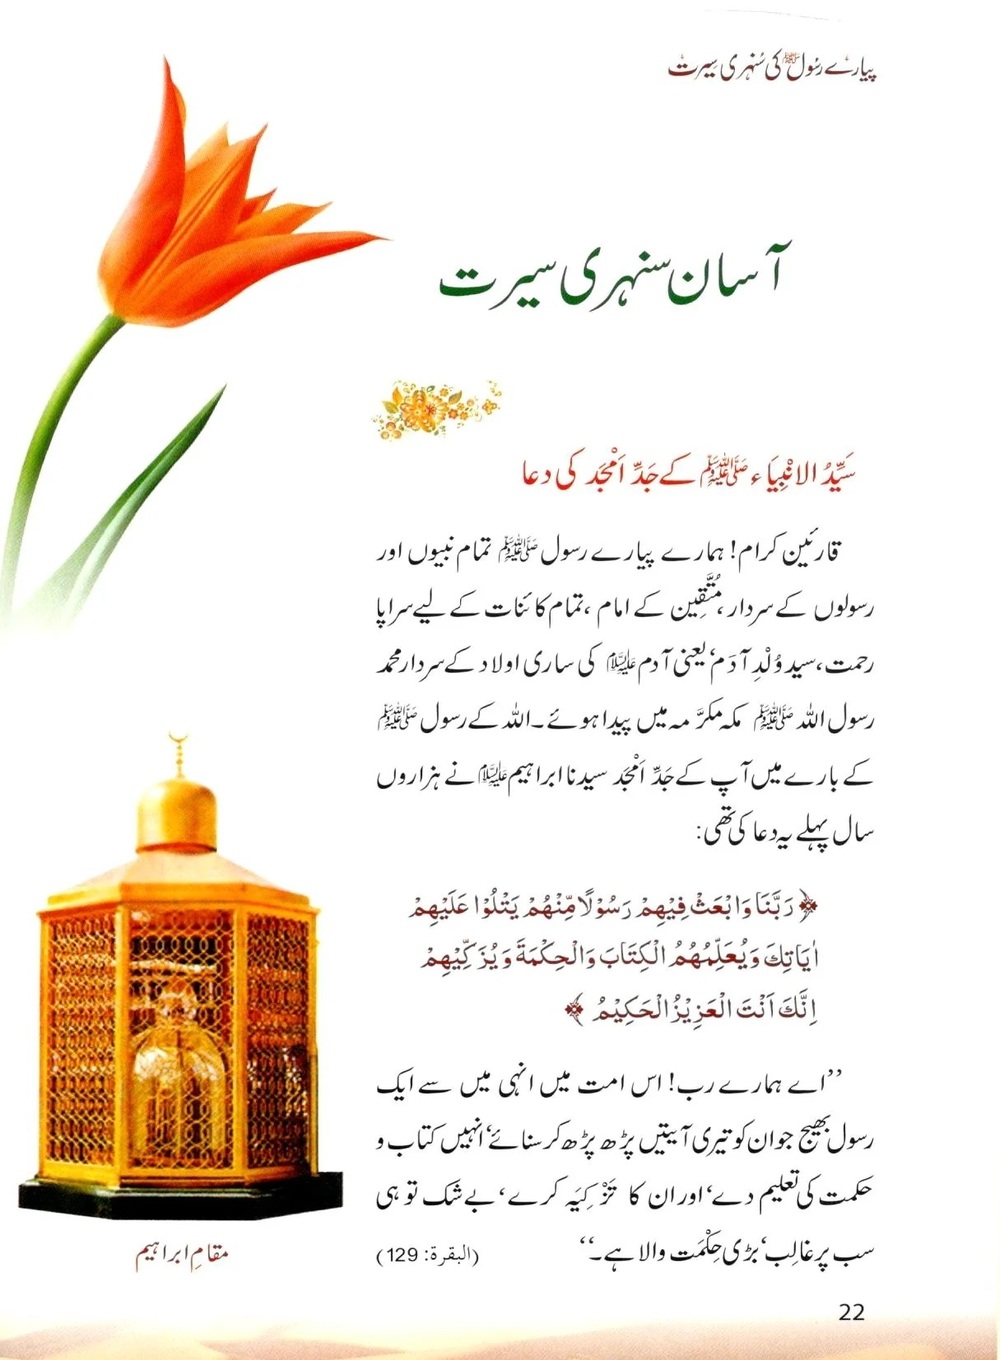 پیارے رسُول ﷺ کی سُنہری سِیرت
آسان سنہری سیرت
سَیِّدُ الانْبِیَاء ﷺ کے جَدِّ اَمْجَد کی دعا
قارئین کرام! ہمارے پیارے رسول ﷺ تمام نبیوں اور
رسولوں کے سردار، مُتَّقِین کے امام، تمام کائنات کے لیے سراپا
رحمت، سید وُلْدِ آدَم، یعنی آدم علیہ السلام کی ساری اولاد کے سردار محمد
رسول اللہ ﷺ مکہ مکرَّمہ میں پیدا ہوئے۔ اللہ کے رسول ﷺ
کے بارے میں آپ کے جَدِّ اَمْجَد سیدنا ابراہیم علیہ السلام نے ہزاروں
سال پہلے یہ دعا کی تھی:
﴿رَبَّنَا وَابْعَثْ فِيْهِمْ رَسُوْلًا مِّنْهُمْ يَتْلُوْا عَلَيْهِمْ
اٰيَاتِكَ وَيُعَلِّمُهُمُ الْكِتَابَ وَالْحِكْمَةَ وَيُزَكِّيْهِمْ
اِنَّكَ اَنْتَ الْعَزِيْزُ الْحَكِيْمُ﴾
’’اے ہمارے رب! اس امت میں انہی میں سے ایک
رسول بھیج جو ان کو تیری آیتیں پڑھ پڑھ کر سنائے، انہیں کتاب و
حکمت کی تعلیم دے، اور ان کا تَزْکِیَہ کرے، بے شک تو ہی
سب پر غالِب، بڑی حِکْمَت والا ہے۔‘‘ (البقرۃ: 129)
مقامِ ابراہیم
22